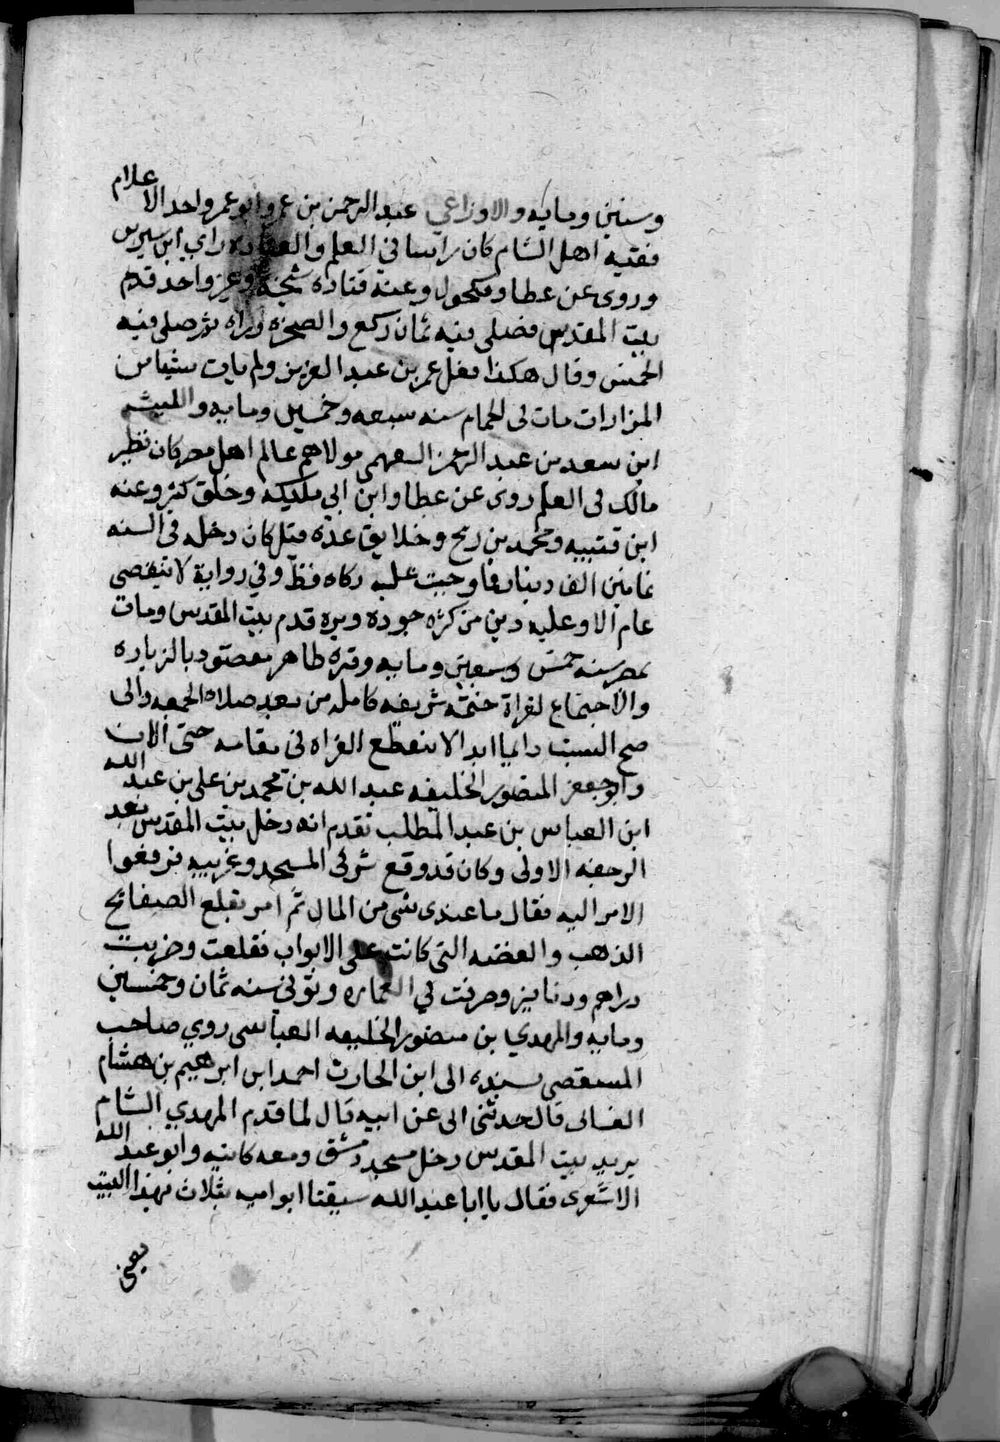 وستين ومايه والاوزاعي عبد الرحمن بن عمرو ابو عمرو احد الاعلام
فقيه اهل الشام كان راسا في العلم والعباده راي ابن سيرين
وروى عن عطا ومكحول وعنه قتاده شيخه وغير واحد قدم
بيت المقدس فصلى فيه ثمان ركع والصخره وراه ثم صلى فيه
الخمس وقال هكذا فعل عمر بن عبد العزيز ولم يات شيا من
المزارات مات في الحمام سنه سبعه وخمسين ومايه والليث
ابن سعد بن عبد الرحمن الفهمي مولاهم عالم اهل مصر كان نظير
مالك في العلم روى عن عطا وابن ابي مليكه وخلق كثير وعنه
ابن قتيبه ومحمد بن رمح وخلايق عده قيل كان دخله في السنه
ثمانين الف دينار فما وجبت عليه زكاه قط وفي رواية لا ينقضي
عام الا وعليه دين من كثره جوده وبره قدم بيت المقدس ومات
بمصر سنه خمس وسبعين ومايه وقبره ظاهر مقصود بالزياره
والاجتماع لقراة ختمه شريفه كامله من بعد صلاه الجمعه والى
صبح السبت دايما ابدا لا ينقطع القراه في مقامه حتى الان
وابو جعفر المنصور الخليفه عبد الله بن محمد بن علي بن عبد الله
ابن العباس بن عبد المطلب تقدم انه دخل بيت المقدس بعد
الرجفه الاولى وكان قد وقع شرقي المسجد وغربيه فرفعوا
الامر اليه فقال ما عندى شي من المال ثم امر بقلع الصفايح
الذهب والفضه التي كانت على الابواب فقلعت وضربت
دراهم ودنانيز وصرفت في العماره وتوفي سنه ثمان وخمسين
ومايه والمهدي بن منصور الخليفه العباسي روي صاحب
المستقصى بسنده الى ابن الحارث احمد ابن ابرهيم بن هشام
الغساني قال حدثني ابى عن ابيه قال لما قدم المهدي الشام
يريد بيت المقدس دخل مسجد دمشق ومعه كاتبه وابو عبد الله
الاشعرى فقال يا ابا عبد الله سبقتنا بنو اميه بثلاث بهذا البيت
يعني